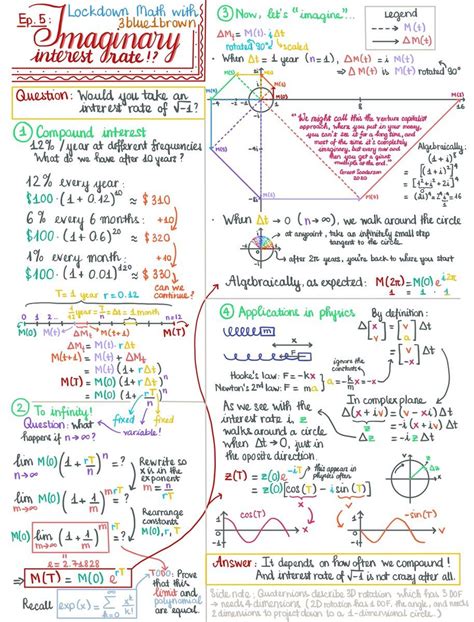 Ep. 5:
Lockdown Math with
3blue1brown
Imaginary
interest rate!?
Question: Would you take an
interest rate of √-1?
① Compound interest
12% / year at different frequencies
What do we have after 10 years?
12% every year:
$100·(1+0.12)¹⁰ ≈ $310
6% every 6 months:
+10
$100·(1+0.6)²⁰ ≈ $320
1% every month:
+10
$100·(1+0.01)¹²⁰ ≈ $330
can we
continue?
T = 1 year r = 0.12
n=0
n=1
1 year = T/n = Δt = 1 month
n=12
M(0) M(t) ΔM(t) M(T)
ΔMt = M(t)·rΔt
M(t+1) = M(t) + ΔMt
M(t+1) = M(t)(1+rΔt)
M(T) = M(0)(1+rT/n)ⁿ
fixed
fixed
variable!
② To infinity!
Question: what
happens if n→∞?
lim n→∞ M(0)(1+rT/n)ⁿ = ?
Rewrite so
x is in the
exponent
lim m→∞ M(0)(1+1/m)^mrT = ?
m = n/rT
Rearrange
constants
M(0), r, T
M(0) lim m→∞ (1+1/m)^m rT = ?
e = 2.71828
⇒ M(T) = M(0) e^rT
TODO: Prove
that this
limit and
polynomial
are equal.
Recall exp(x) = ∞Σk=0 x^k/k!
③ Now, let's "imagine"...
Legend
→ M(t)
→ ΔM(t)
ΔMt = M(t)·iΔt
rotated 90°
scaled
When Δt = 1 year (n=1), ΔMt = M(t)i
⇒ ΔM(t) is M(t) rotated 90°
"We might call this the venture capitalist
approach, where you put in your money,
you can't see it for a long time, and
most of the time it's completely
imaginary, but every now and
then you get a giant
multiple at the end."
Grant Sanderson
2020
Algebraically:
(1+i)⁸
= [(1+i)²]⁴
= [1²+i²+2i]⁴
= (2i)⁴ = 16
When Δt → 0 (n→∞), we walk around the circle
at any point, take an infinitely small step
tangent to the circle.
after 2π years, you're back to where you start
Algebraically, as expected: M(2π) = M(0)e^i2π
④ Applications in physics
Hooke's law: F = -kx
Newton's 2nd law: F = ma
ignore the
constants
By definition:
Δ[x v] = [v a]Δt
= [v -x]Δt
In complex plane
Δ(x+iv) = (v-xi)Δt
Δz = -i z Δt
As we see with the
interest rate i, z
walks around a circle
when Δt → 0, just in
the opposite direction.
z(T) = z(0)e^-iT
this appears in
physics often
= z(0)[cos(T) - i sin(T)]
cos(T)
-sin(T)
Answer: It depends on how often we compound!
And interest rate of √-1 is not crazy after all.
Side note: Quaternions describe 3D rotation which has 3 DOF
→ needs 4 dimensions (2D rotation has 1 DOF, the angle, and needs
2 dimensions to project down to a 1-dimensional circle)